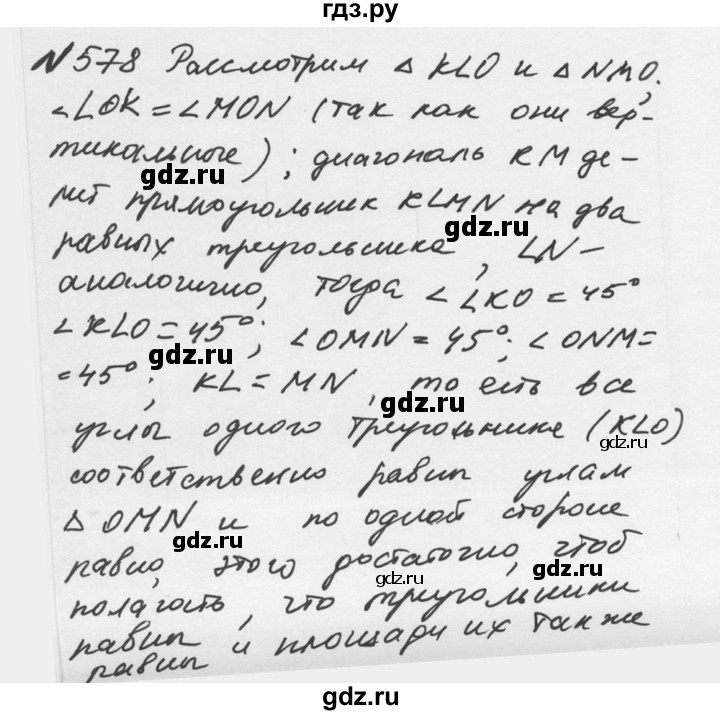 гдз.ру
№578 Рассмотрим △ KLO и △ NMO,
∠LOK = ∠MON (так как они вер-
тикальные); диагональ KM де-
gdz.ru
лит прямоугольник KLMN на два
gdz.ru
равных треугольника, LN-
аналогично, тогда ∠LKO = 45°
∠KLO = 45°; ∠OMN = 45°; ∠ONM=
gdz.ru
=45°; KL = MN, то есть все
gdz.ru
углы одного треугольнике (KLO)
gdz.ru
соответственно равны углам
△ OMN и по одной стороне
gdz.ru
равно, этого достаточно, чтоб
gdz.ru
gdz.ru
полагать, что треугольники
равны и площади их также
равны
gdz.ru
gdz.ru